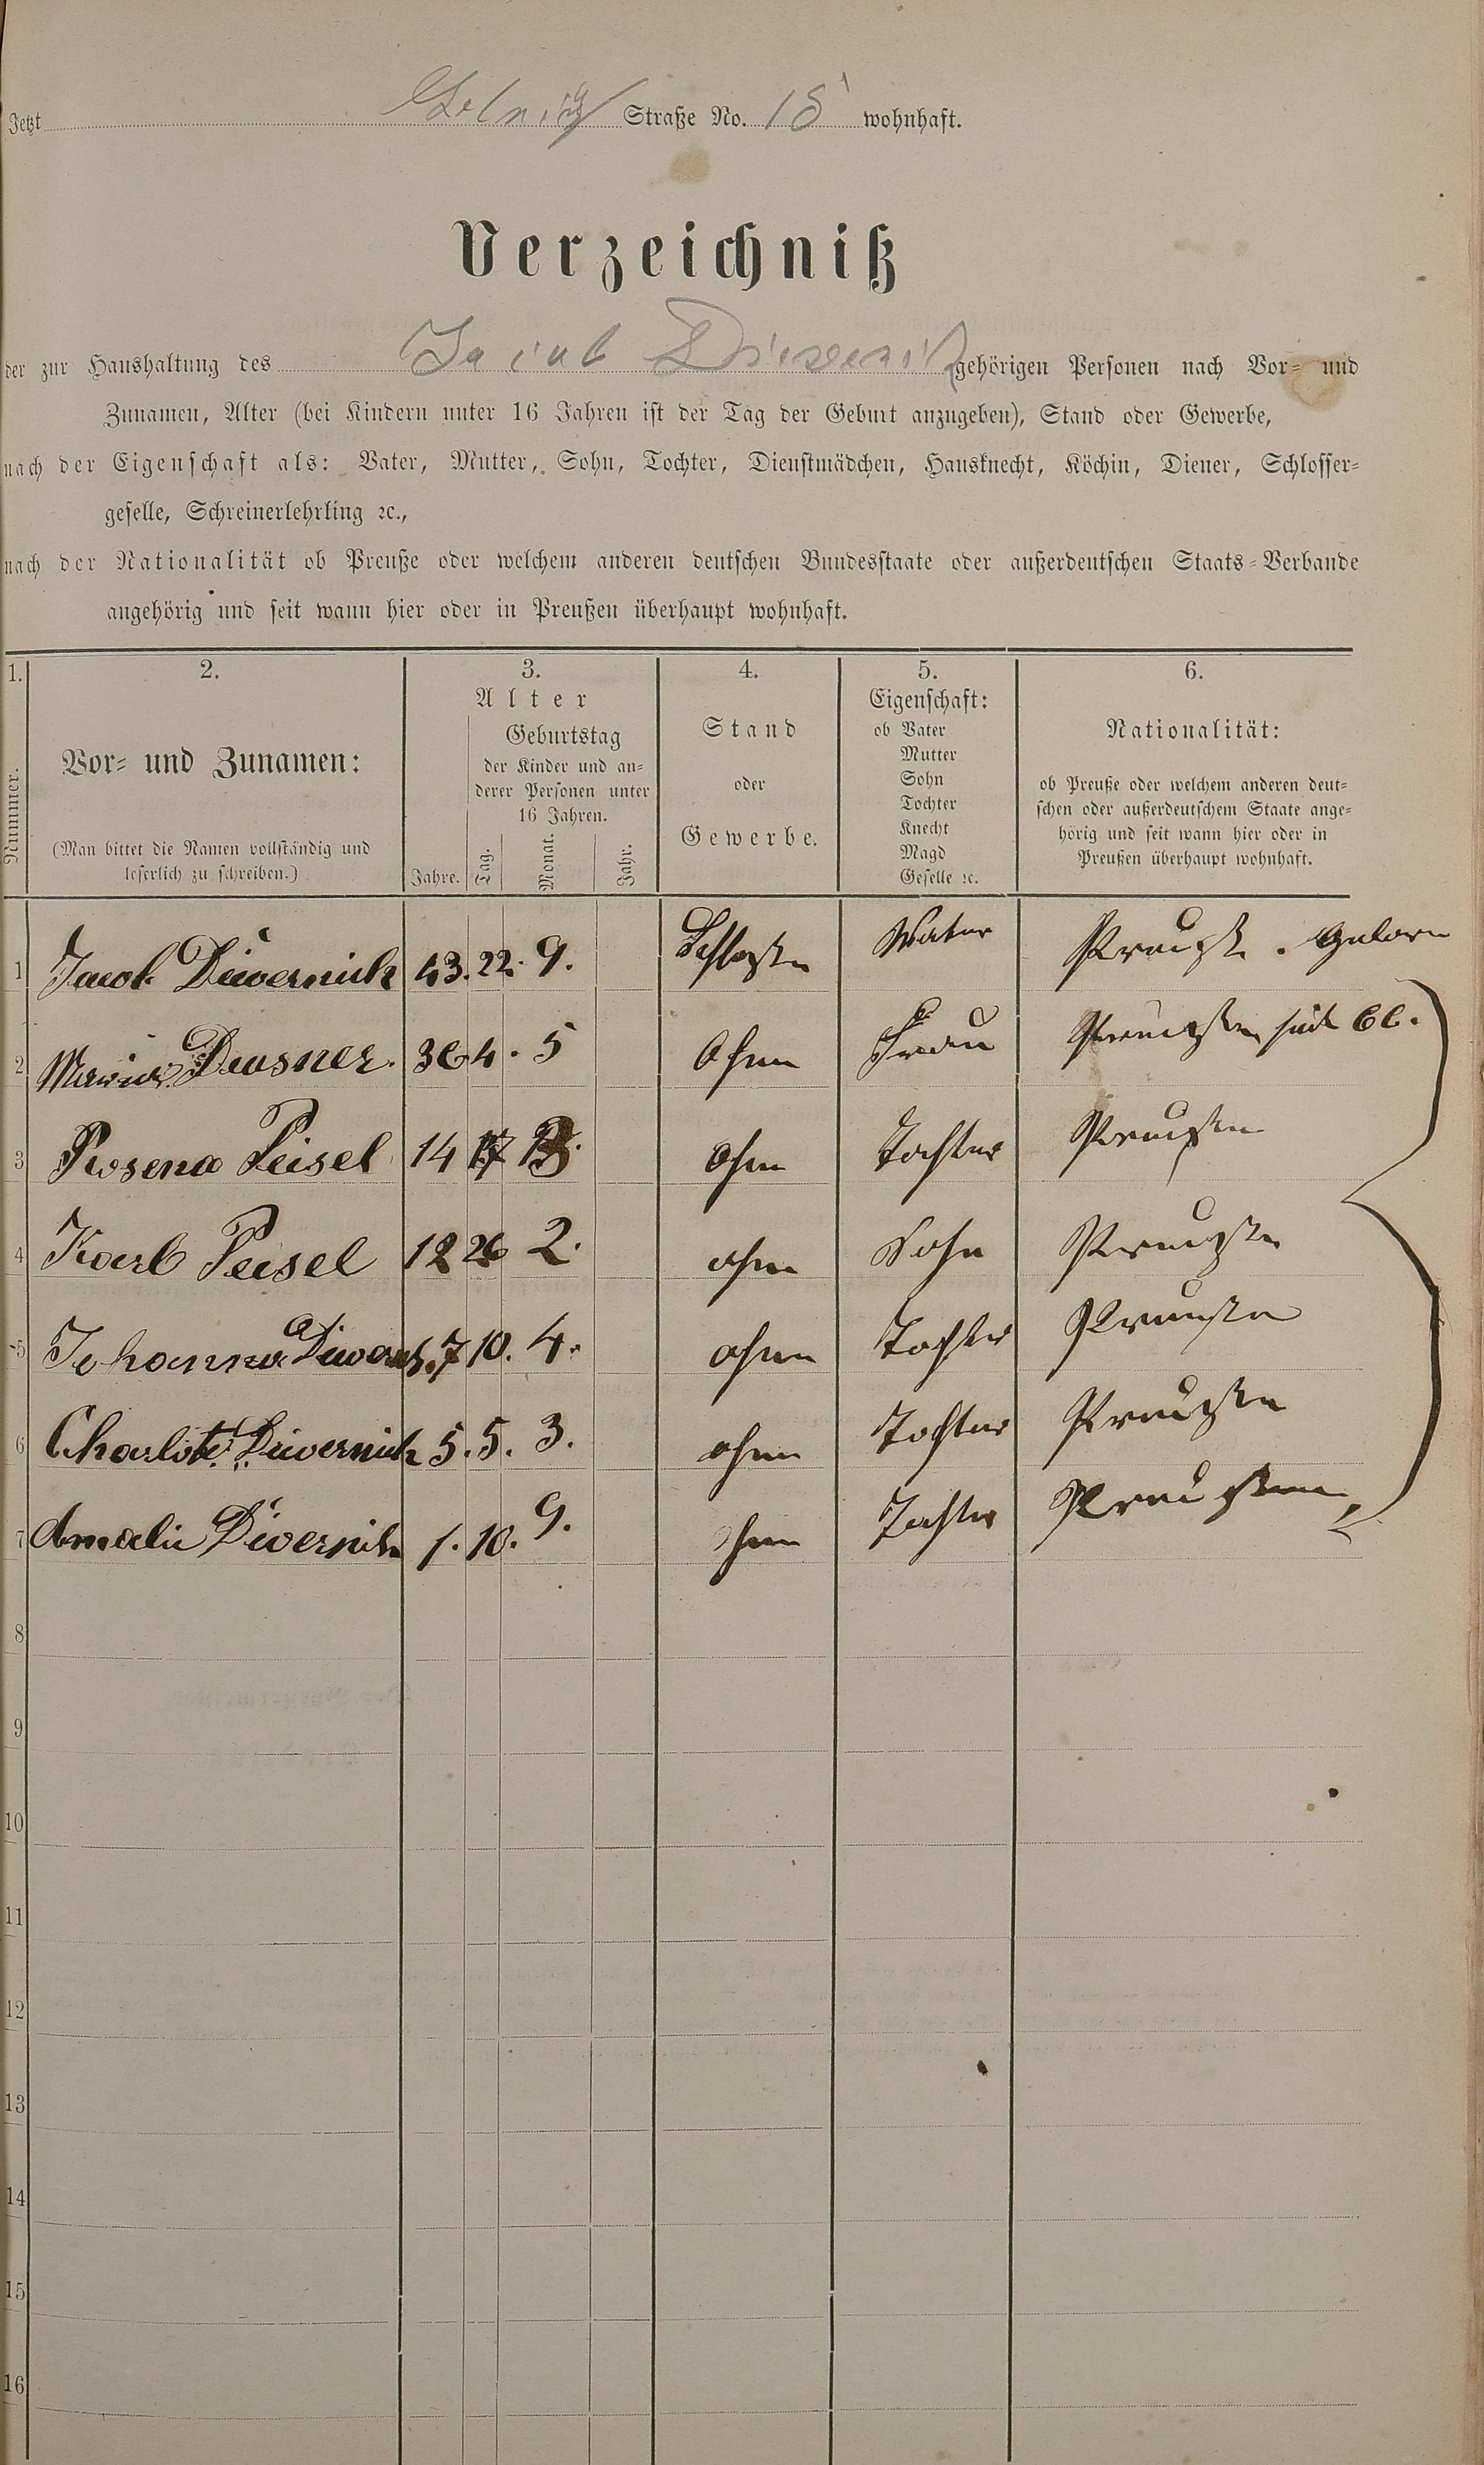 Jetzt Straße No. 18 wohnhaft.
Verzeichniß
der zur Haushaltung des Jacob gehörigen Personen nach Vor- und
Zunamen, Alter (bei Kindern unter 16 Jahren ist der Tag der Geburt anzugeben), Stand oder Gewerbe,
nach der Eigenschaft als: Vater, Mutter, Sohn, Tochter, Dienstmädchen, Hausknecht, Köchin, Diener, Schlosser-
geselle, Schreinerlehrling ꝛc.,
nach der Nationalität ob Preuße oder welchem anderen deutschen Bundesstaate oder außerdeutschen Staats-Verbande
angehörig und seit wann hier oder in Preußen überhaupt wohnhaft.
1. 2. 3. 4. 5. 6.
Nummer.
Vor- und Zunamen:
(Man bittet die Namen vollständig und
leserlich zu schreiben.)
Alter
Geburtstag
der Kinder und an-
derer Personen unter
16 Jahren.
Jahre. Tag. Monat. Jahr.
Stand
oder
Gewerbe.
Eigenschaft:
ob Vater
Mutter
Sohn
Tochter
Knecht
Magd
Geselle ꝛc.
Nationalität:
ob Preuße oder welchem anderen deut-
schen oder außerdeutschem Staate ange-
hörig und seit wann hier oder in
Preußen überhaupt wohnhaft.
1 Jacob Düvernich 43. 22. 9. Vater Preuße. Geboren
2 Maria Deusner. 36 4. 5 Ohne Frau Preußen seit 66.
3 Rosena Peisel 14 Ohne Tochter Preußen
4 Karl Peisel 12 26 2. ohne Sohn Preußen
5 Johanna 7 10. 4. ohne Tochter Preußen
6 Charlote Düvernich 5. 5. 3. ohne Tochter Preußen
7 Amalie Düvernich 1. 10. 9. ohne Tochter Preußen
8
9
10
11
12
13
14
15
16